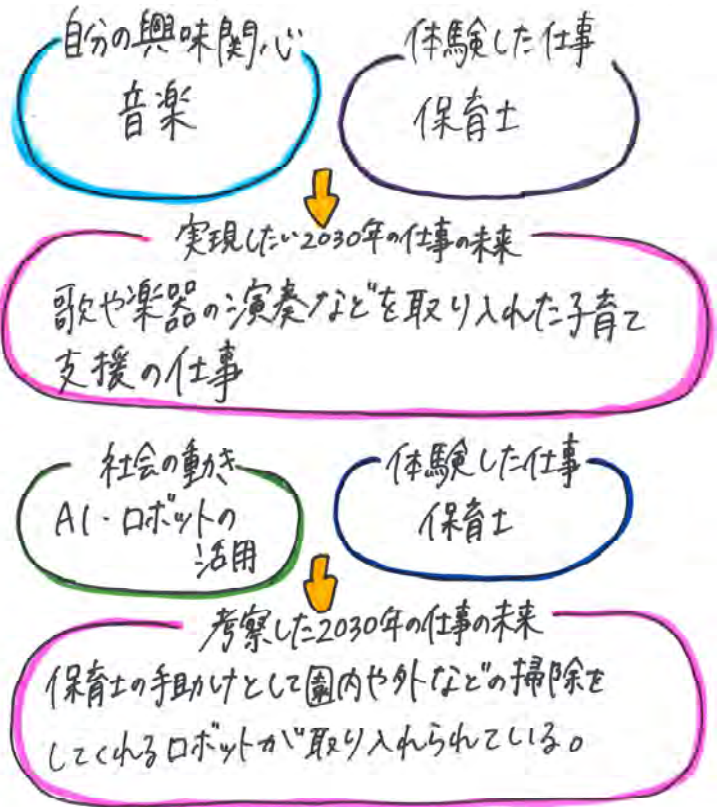 自分の興味関心
音楽
体験した仕事
保育士
実現したい2030年の仕事の未来
歌や楽器の演奏などを取り入れた子育て
支援の仕事
社会の動き
AI・ロボットの
活用
体験した仕事
保育士
考察した2030年の仕事の未来
保育士の手助けとして園内や外などの掃除を
してくれるロボットが取り入れられている。